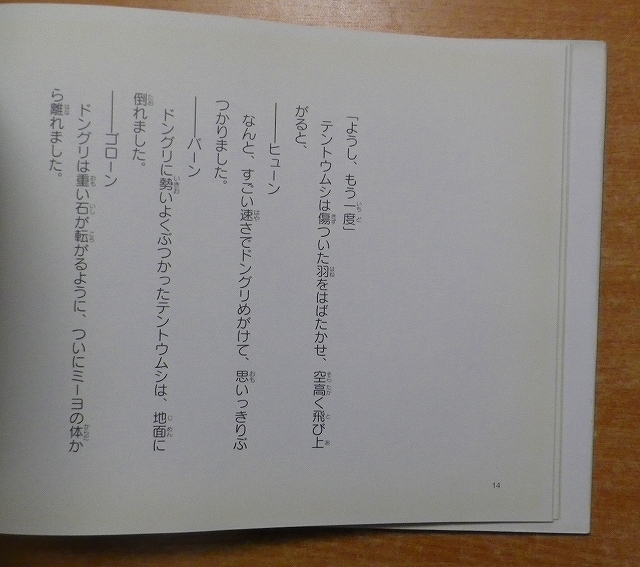 「ようし、もう一度」
テントウムシは傷ついた羽をはばたかせ、空高く飛び上
がると、
――ヒューン
なんと、すごい速さでドングリめがけて、思いっきりぶ
つかりました。
――バーン
ドングリに勢いよくぶつかったテントウムシは、地面に
倒れました。
――ゴローン
ドングリは重い石が転がるように、ついにミーヨの体か
ら離れました。
14